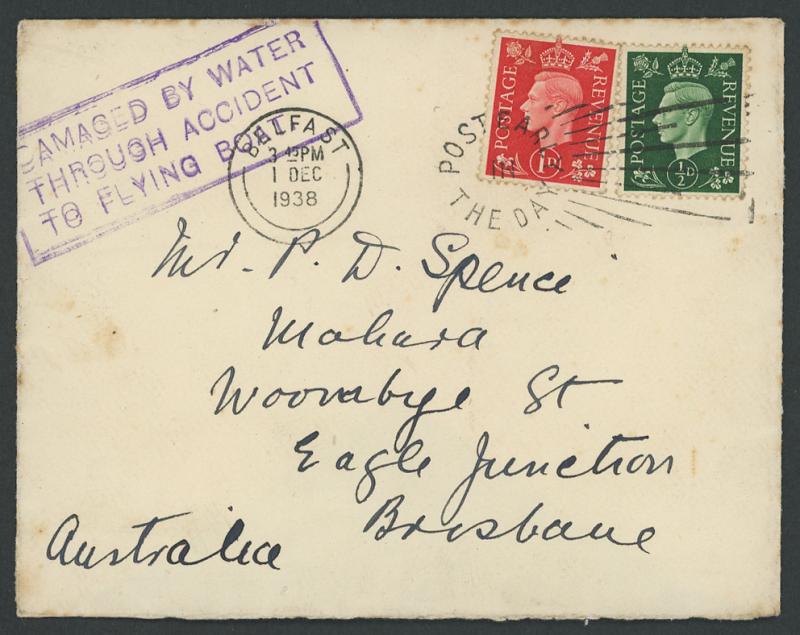 DAMAGED BY WATER
THROUGH ACCIDENT
TO FLYING BOAT
BELFAST
3 45 PM
1 DEC
1938
POST EARLY
IN
THE DAY
POSTAGE REVENUE
1D
POSTAGE REVENUE
½D
Mr. P. D. Spence
Mahara
Woorabye St
Eagle Junction
Brisbane
Australia